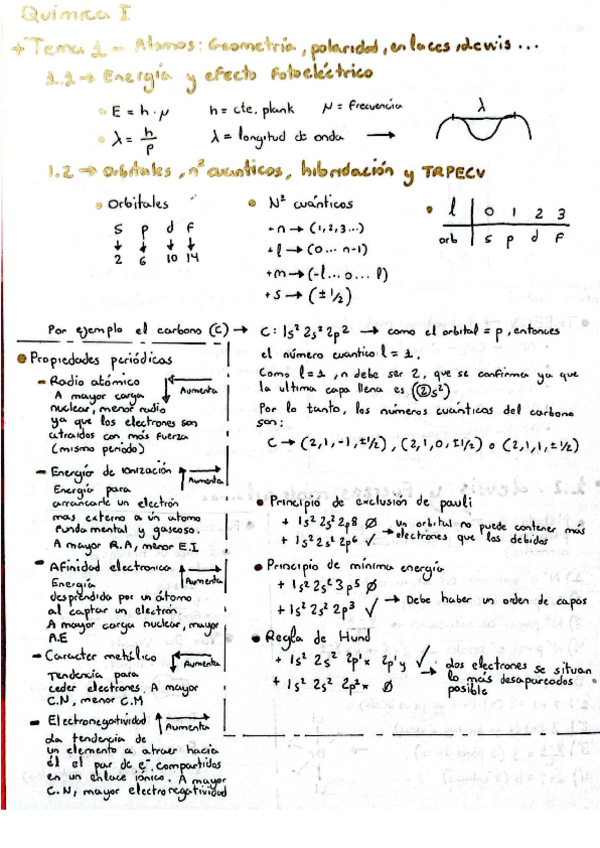 Química I
+ Tema 1 - Atomos: Geometría, polaridad, enlaces, lewis...
1.1 → Energía y efecto fotoeléctrico
• E = h · μ    h = cte. plank    μ = Frecuencia
• λ = h/p    λ = longitud de onda →    λ
1.2 → orbitales, nº cuanticos, hibridación y TRPECV
• Orbitales
s p d f
↓ ↓ ↓ ↓
2 6 10 14
• Nº cuánticos
+ n → (1,2,3...)
+ l → (0... n-1)
+ m → (-l...0... l)
+ s → (±1/2)
• l | 0 1 2 3
orb | s p d f
Por ejemplo el carbono (C) → C: 1s² 2s² 2p² → como el orbital = p, entonces
el número cuantico l = 1.
Como l = 1, n debe ser 2, que se confirma ya que
la ultima capa llena es (2s²)
Por lo tanto, los numeros cuánticos del carbono
son:
C → (2,1,-1,±1/2), (2,1,0,±1/2) o (2,1,1,±1/2)
• Propiedades periódicas
- Radio atómico Aumenta
A mayor carga
nuclear, menor radio
ya que los electrones son
atraidos con más fuerza
(mismo periodo)
- Energía de ionización Aumenta
Energía para
arrancarle un electrón
mas externo a un atomo
fundamental y gaseoso.
A mayor R.A, menor E.I
- Afinidad electronica Aumenta
Energía
desprendida por un átomo
al captar un electrón.
A mayor carga nuclear, mayor
A.E
- Caracter metálico Aumenta
Tendencia para
ceder electrones. A mayor
C.N, menor C.M
- Electronegatividad Aumenta
La tendencia de
un elemento a atraer hacia
él el par de e⁻ compartidos
en un enlace iónico. A mayor
C.N, mayor electronegatividad
• Principio de exclusión de pauli
+ 1s² 2s² 2p8 Ø
+ 1s² 2s² 2p6 ✓ → un orbital no puede contener más
electrones que los debidos
• Principio de mínima energía
+ 1s² 2s² 3p5 Ø
+ 1s² 2s² 2p3 ✓ → Debe haber un orden de capas
• Regla de Hund
+ 1s² 2s² 2p¹x 2p¹y ✓
+ 1s² 2s² 2p²x Ø → dos electrones se situan
lo más desapareados
posible